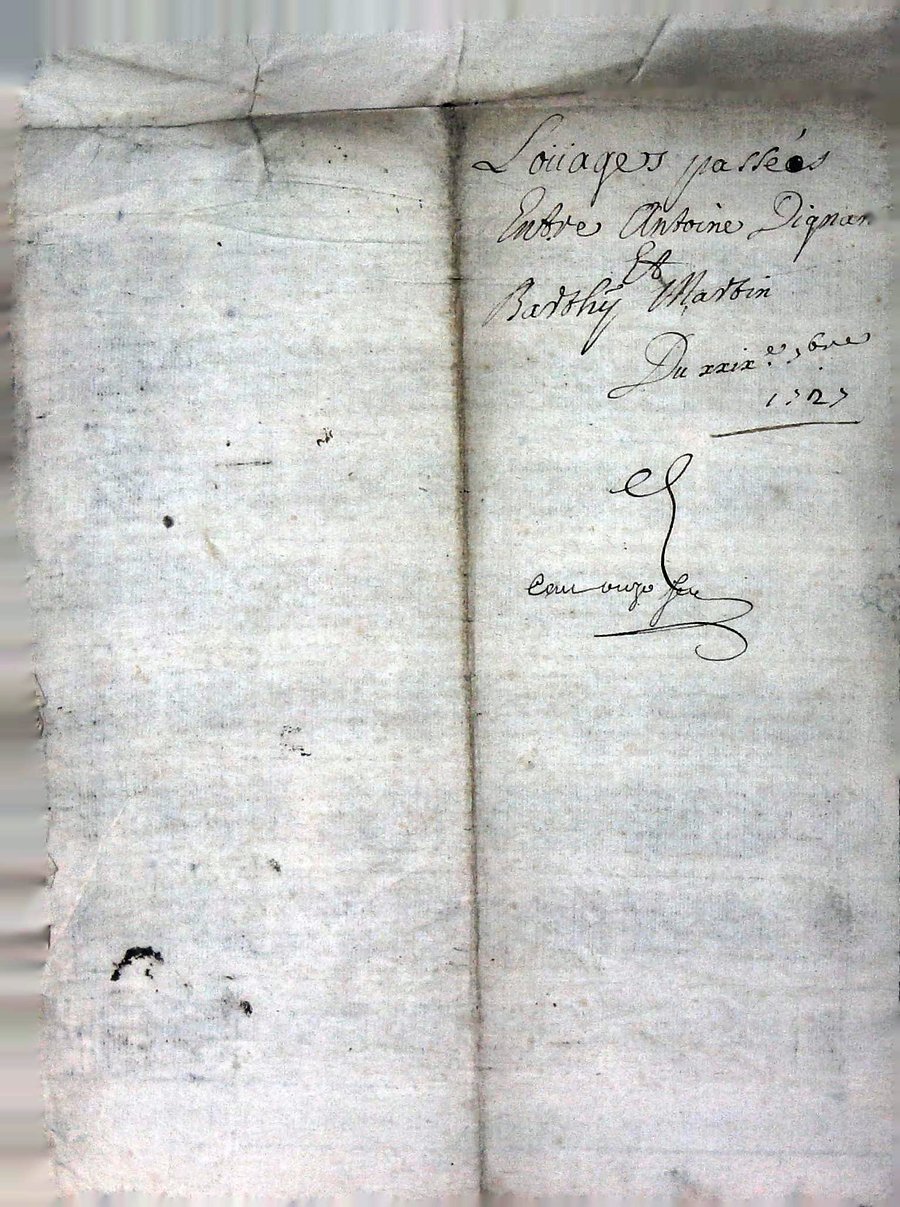 Loüages passées
Entre Antoine Dignan
Et
Barthy Martin
Du xxix.e 9bre
1727